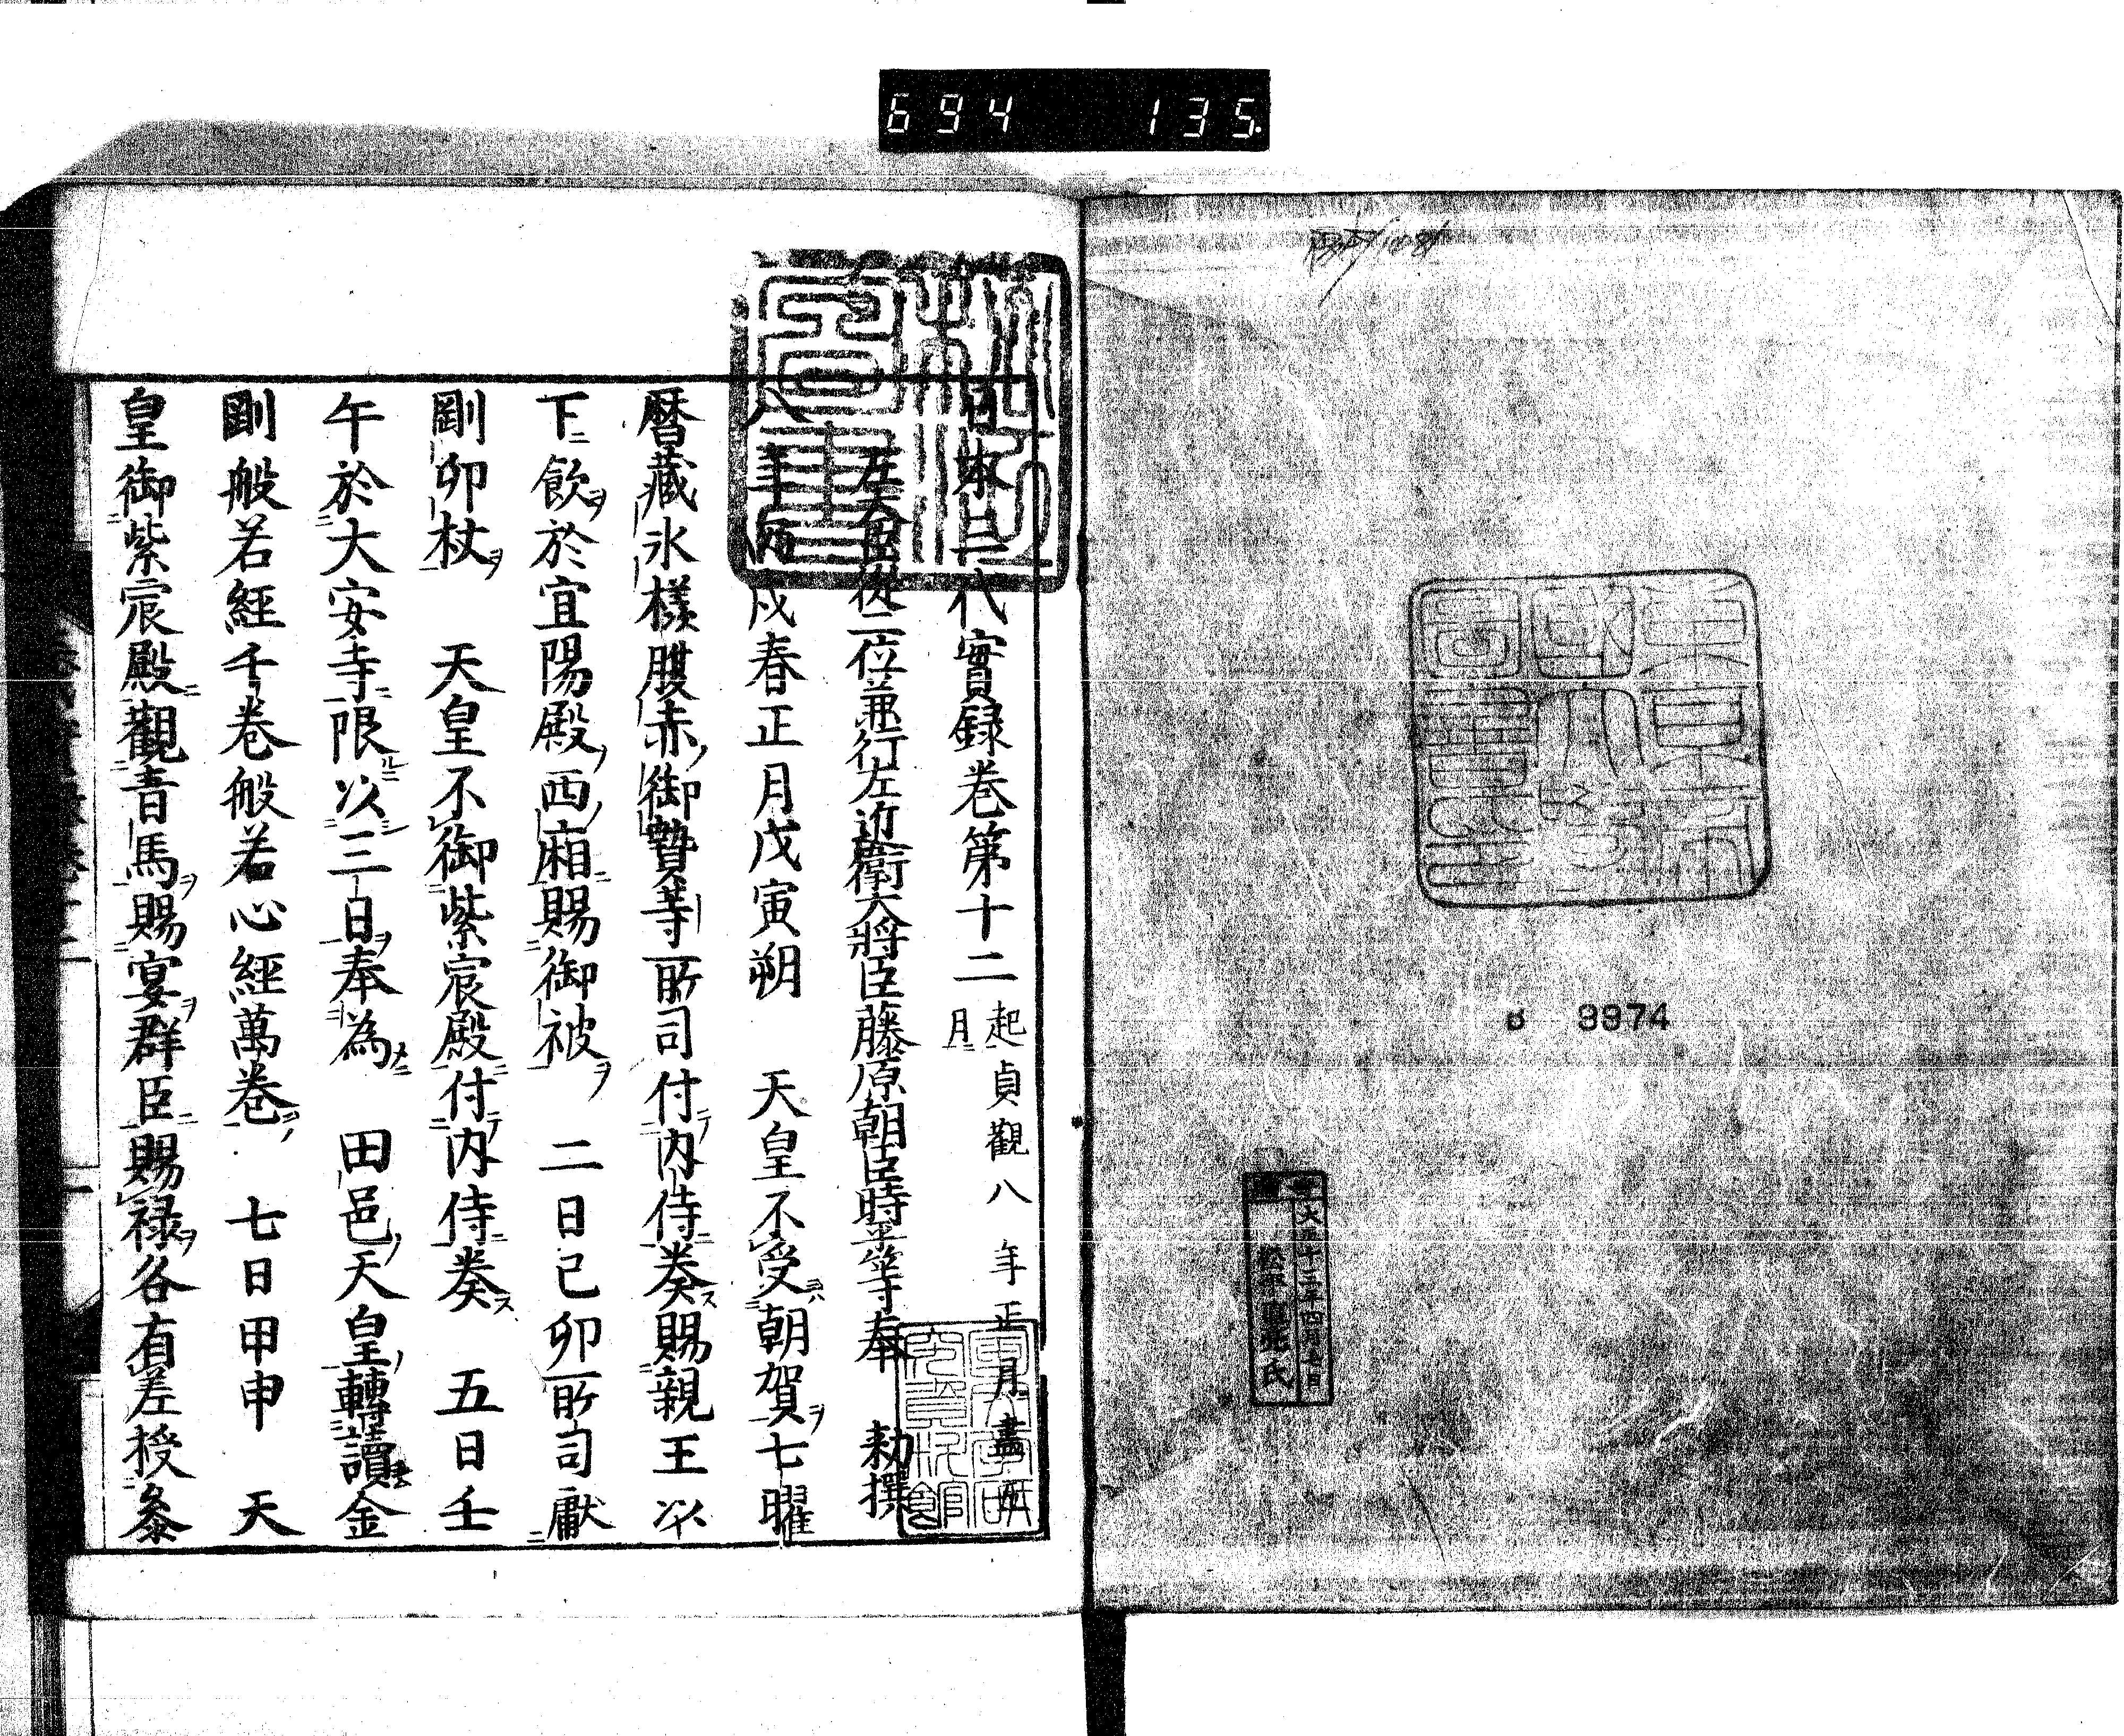 694 135
8974
大正十三年四月七日
氏
日本三代實録卷第十二 起貞觀八年正月盡四月
左大臣從二位兼行左近衛大將臣藤原朝臣時平等奉 勅撰
八年丙戌春正月戊寅朔 天皇不受朝賀七曜
曆藏氷樣腹赤御贄等所司付内侍奏賜親王以
下飲於宜陽殿西廂賜御被 二日己卯所司獻
剛卯杖 天皇不御紫宸殿付内侍奏 五日壬
午於大安寺限以三日奉為 田邑天皇轉讀金
剛般若經千卷般若心經萬卷 七日甲申 天
皇御紫宸殿觀青馬賜宴群臣賜禄各有差授叅